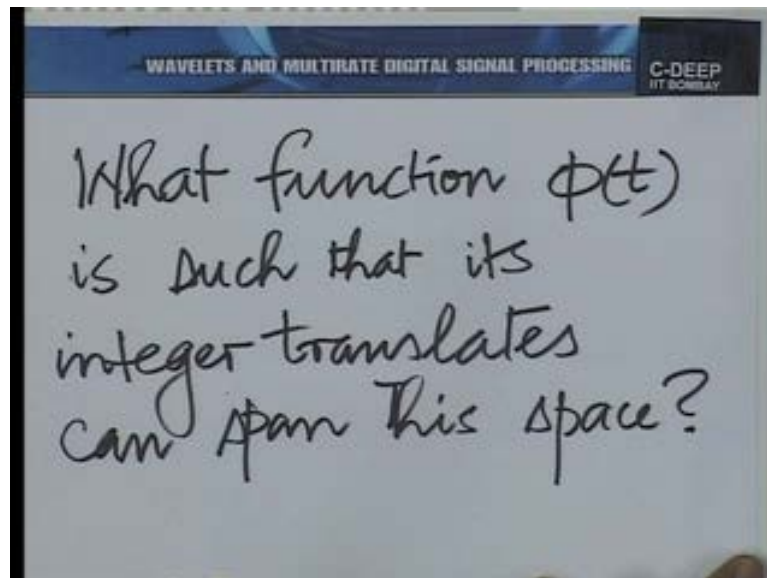 WAVELETS AND MULTIRATE DIGITAL SIGNAL PROCESSING
C-DEEP
IIT BOMBAY
What function ϕ(t)
is such that its
integer translates
can span this space?